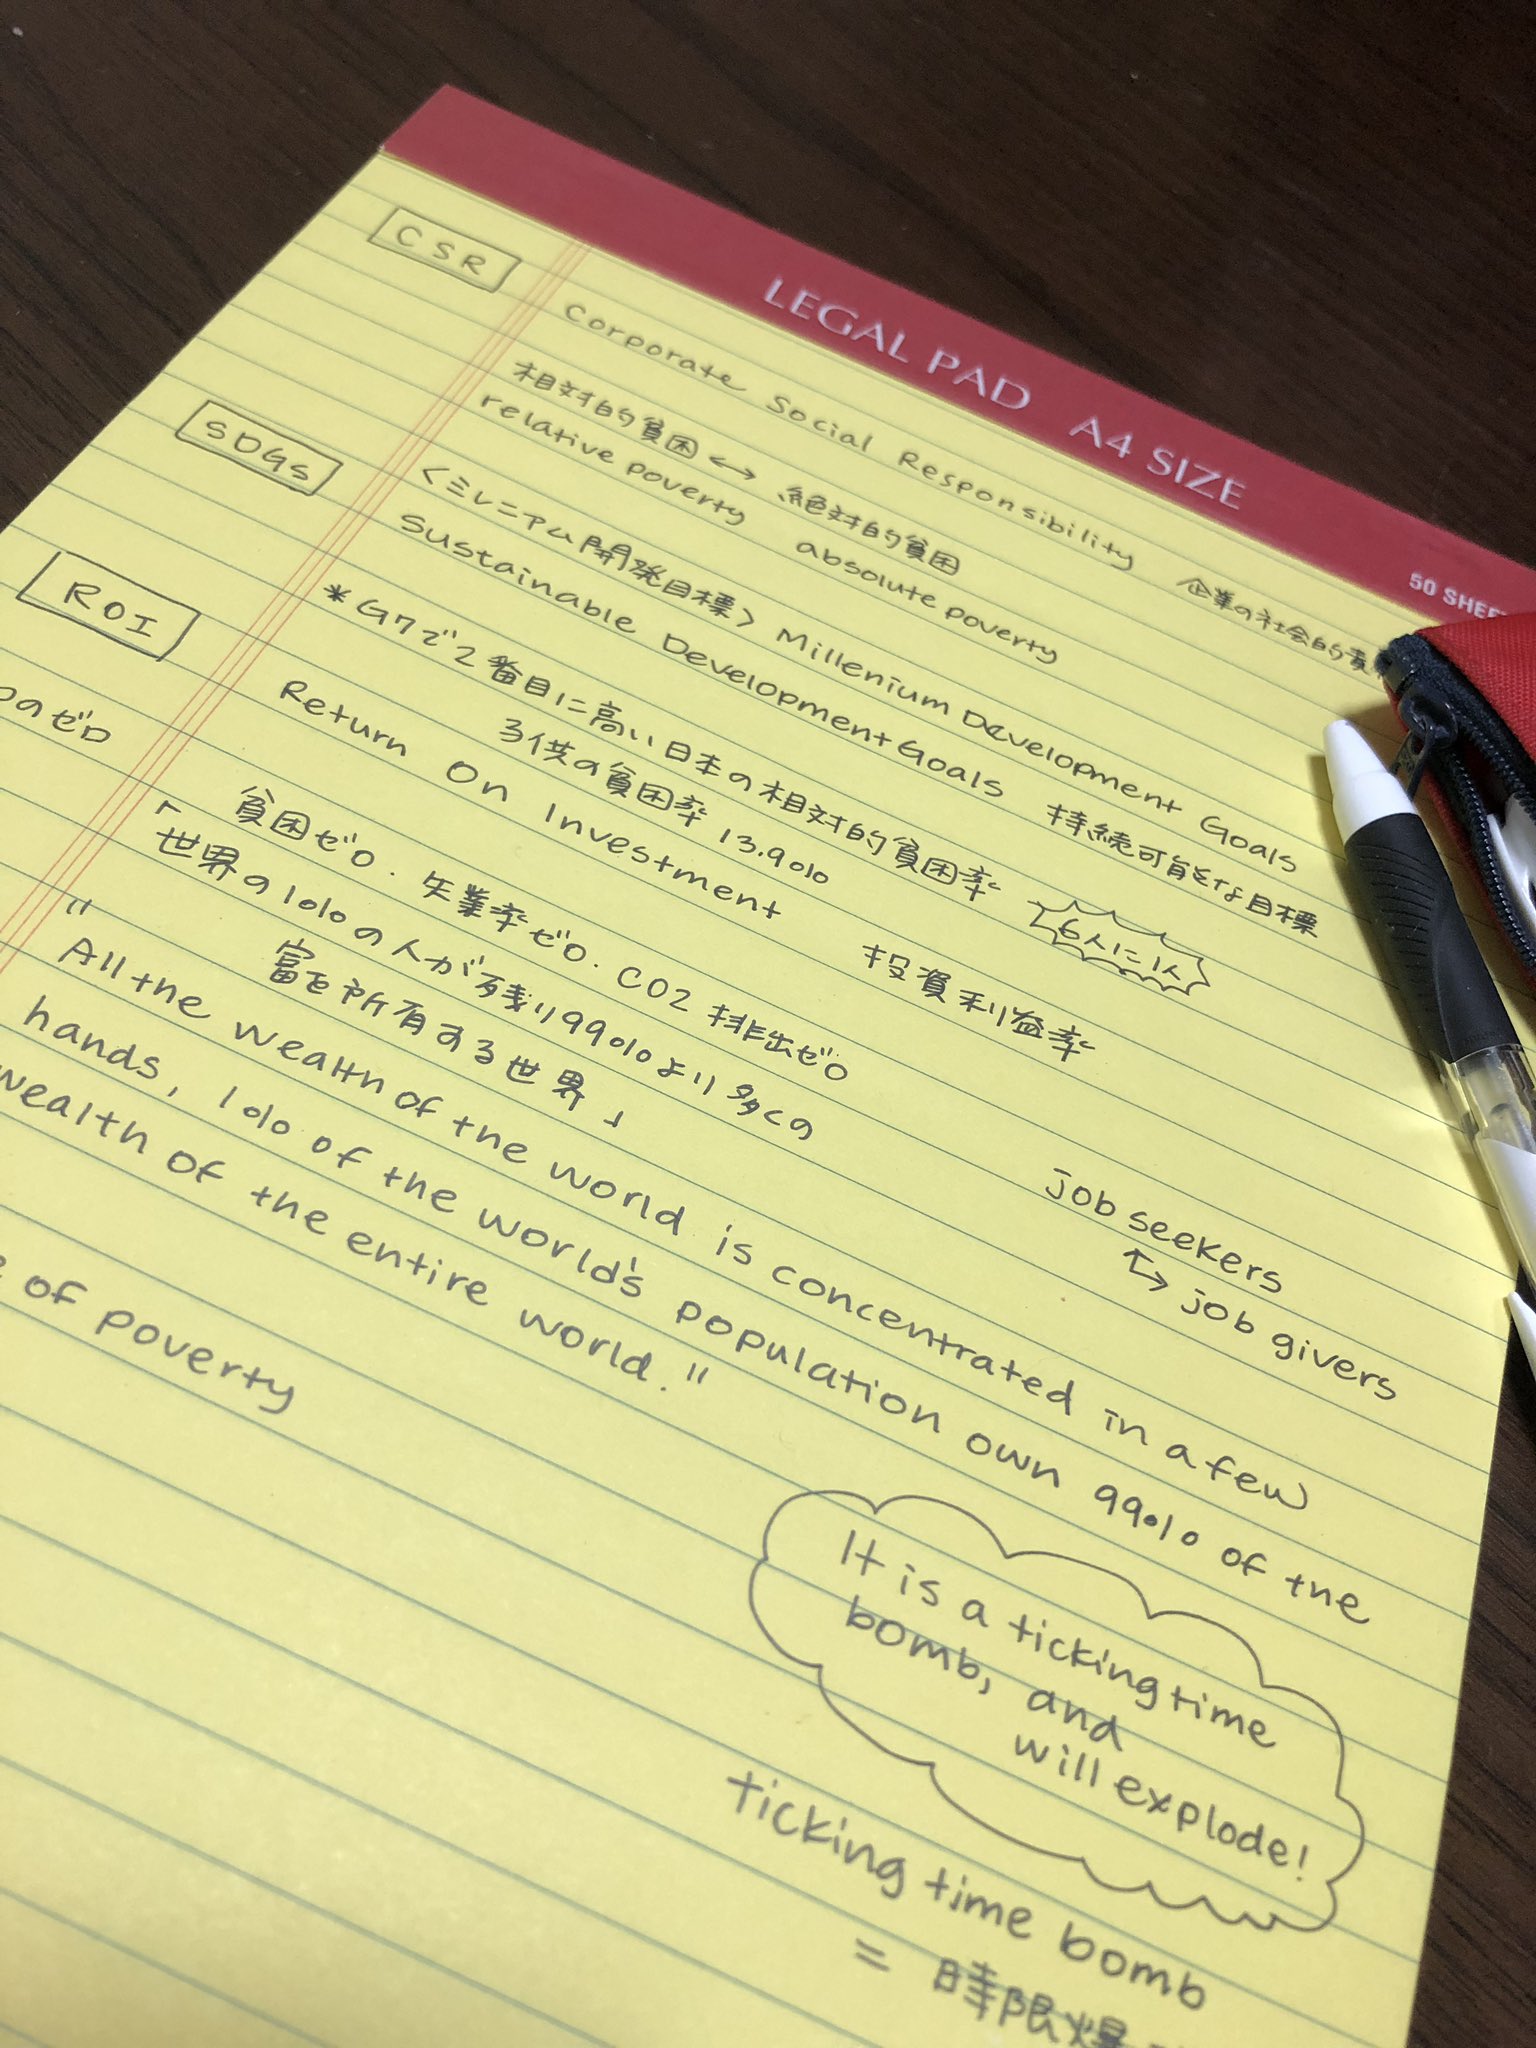 LEGAL PAD A4 SIZE
50 SHEE
CSR
Corporate Social Responsibility 企業の社会的責
相対的貧困 ↔ 絶対的貧困
relative poverty absolute poverty
SDGs
<ミレニアム開発目標> Millenium Development Goals
Sustainable Development Goals 持続可能な目標
*G7で2番目に高い日本の相対的貧困率
子供の貧困率 13.9% 6人に1人
ROI
Return On Investment 投資利益率
のゼロ
貧困ゼロ. 失業率ゼロ. CO2 排出ゼロ
「世界の1%の人が残り99%より多くの
富を所有する世界」
job seekers
↔ job givers
"All the wealth of the world is concentrated in a few
hands, 1% of the world's population own 99% of the
wealth of the entire world."
of poverty
It is a ticking time
bomb, and
will explode!
ticking time bomb
= 時限爆